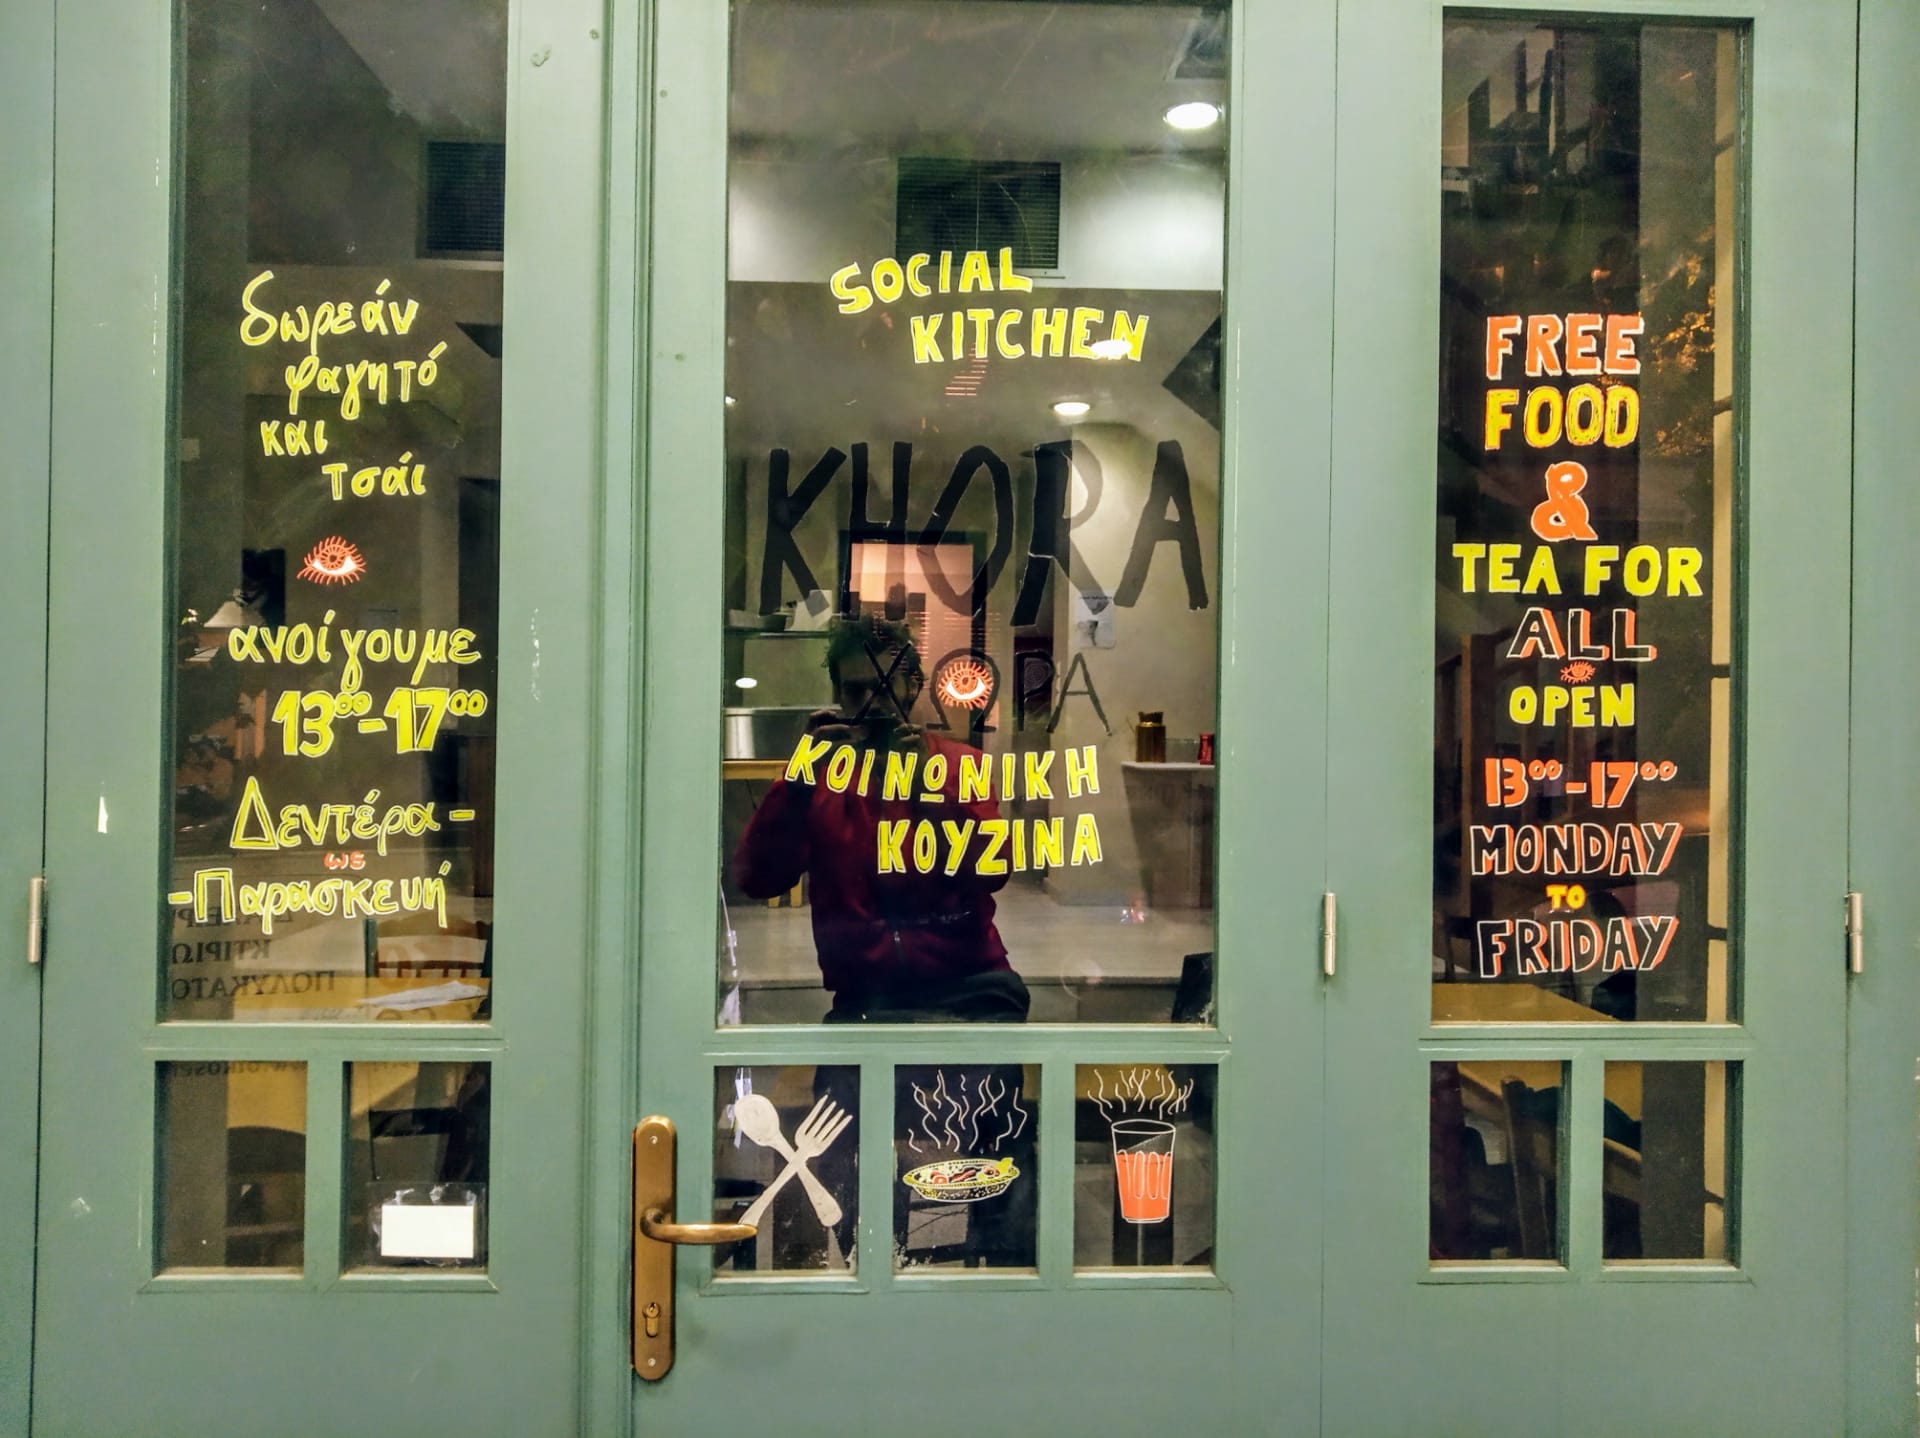 δωρεάν
φαγητό
και
τσάι
ανοίγουμε
13⁰⁰-17⁰⁰
Δευτέρα -
ως
-Παρασκευή
ΚΤΙΡΙΩ
ΠΟΛΥΚΑΤΟ
SOCIAL
KITCHEN
KHORA
ΧΩΡΑ
ΚΟΙΝΩΝΙΚΗ
ΚΟΥΖΙΝΑ
FREE
FOOD
&
TEA FOR
ALL
OPEN
13⁰⁰-17⁰⁰
MONDAY
TO
FRIDAY